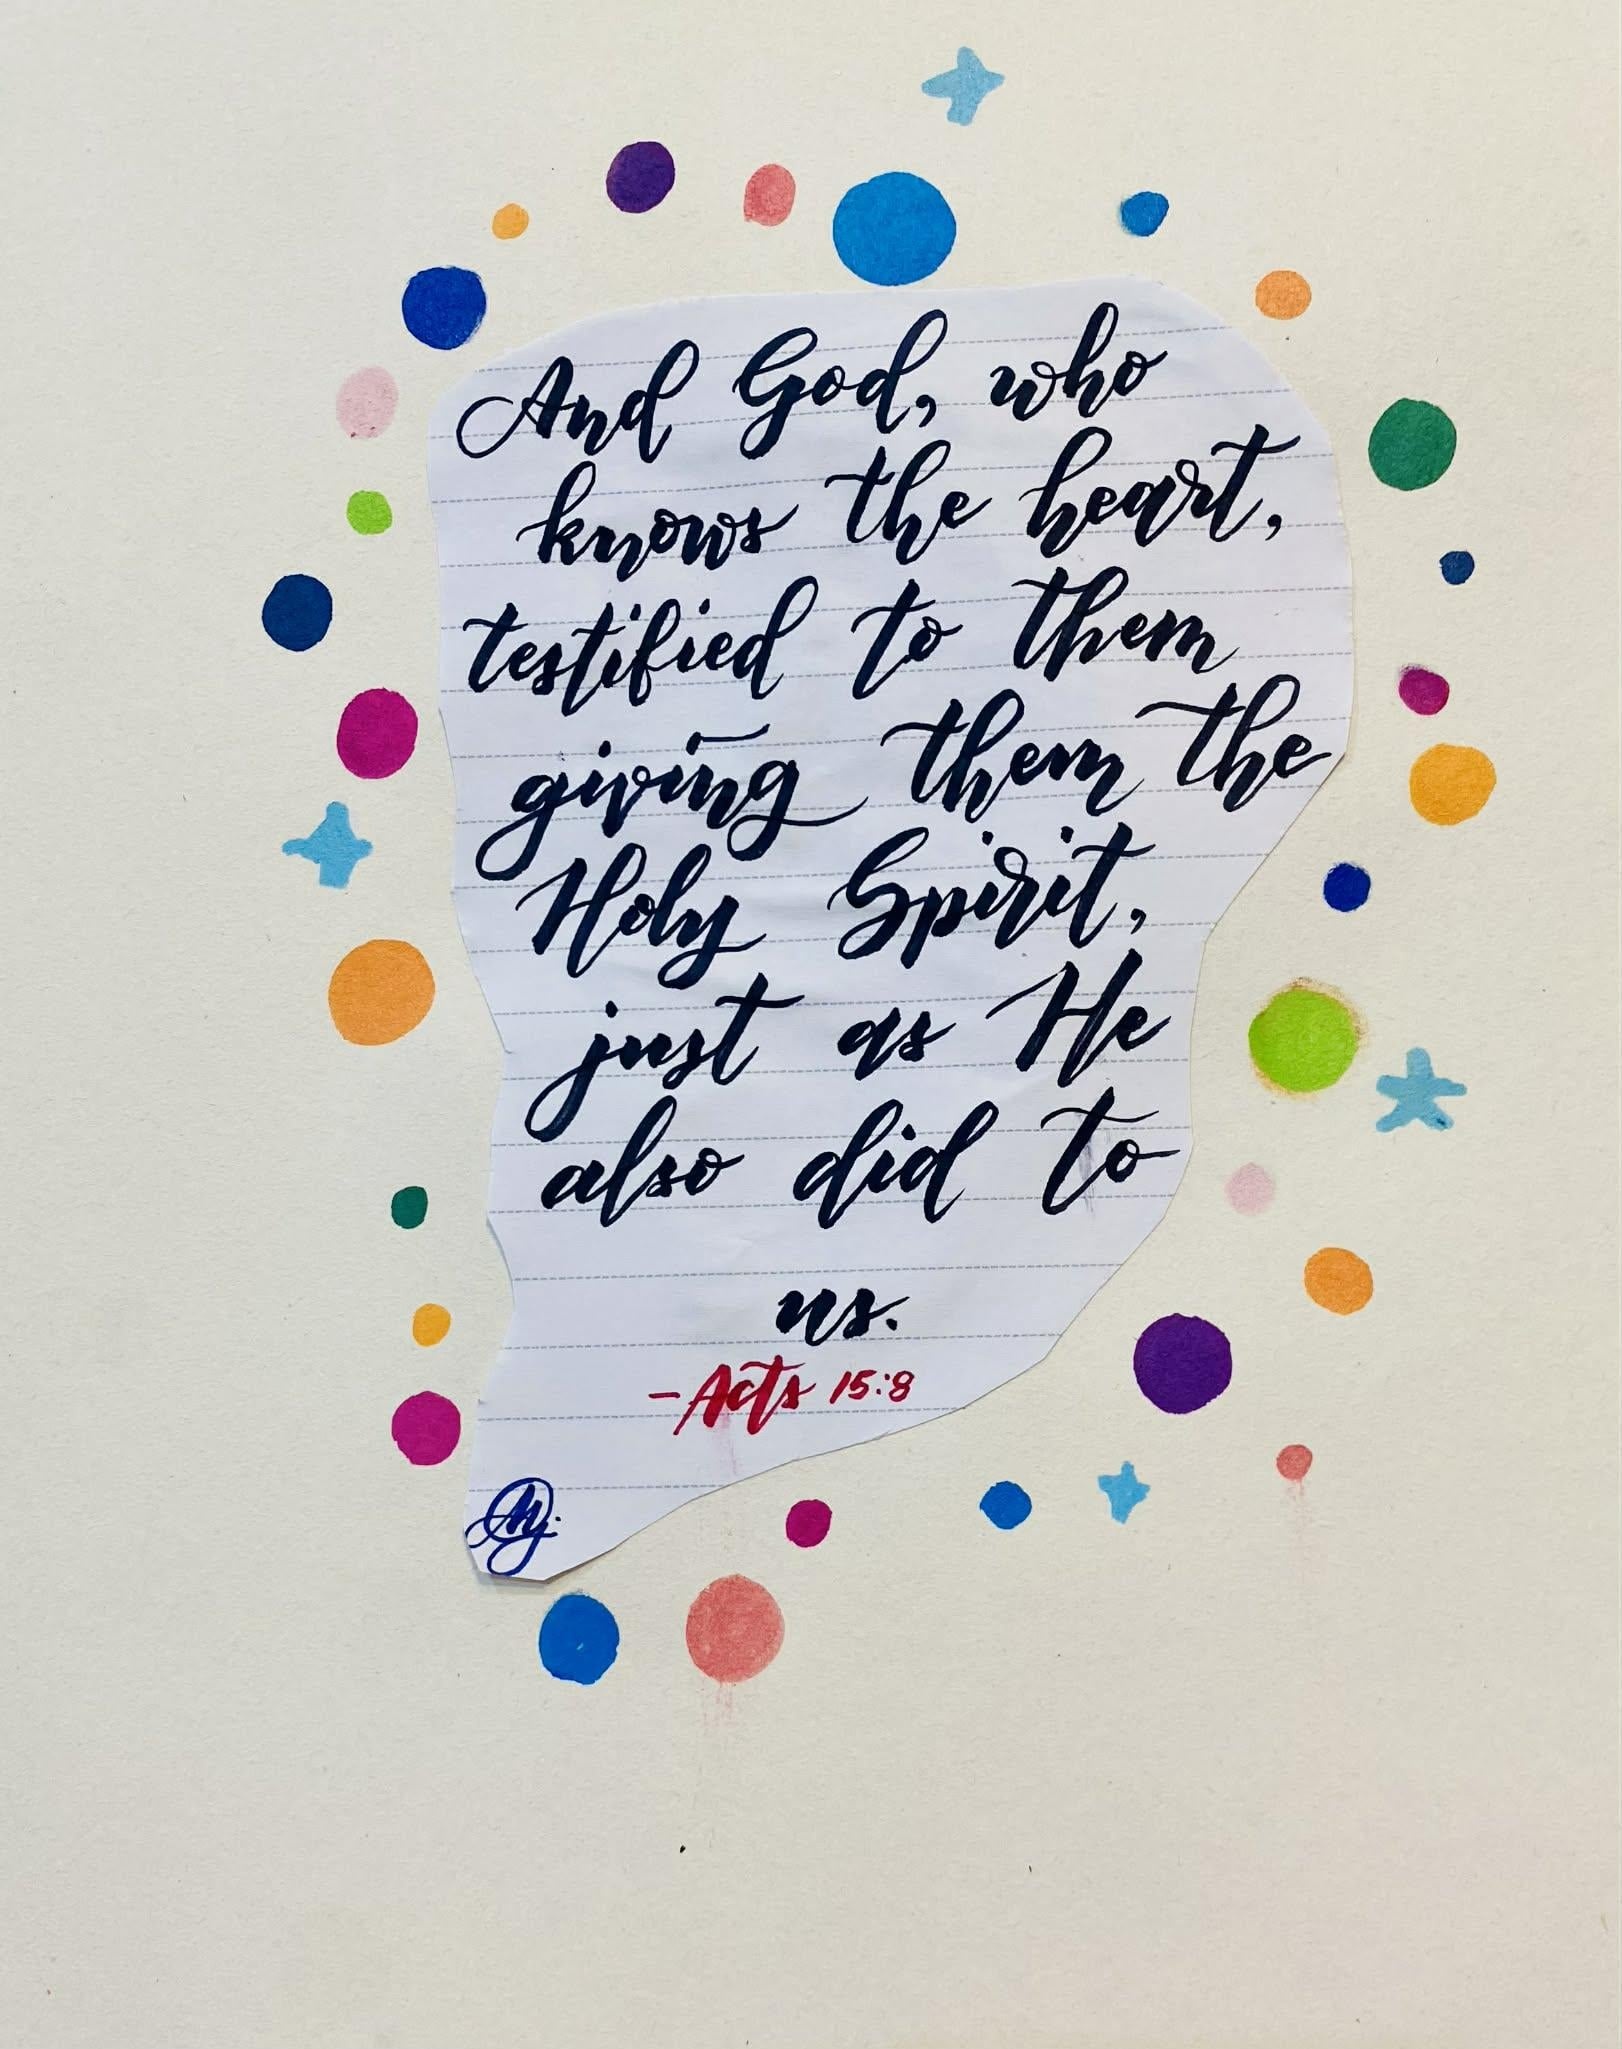 And God, who
knows the heart,
testified to them
giving them the
Holy Spirit,
just as He
also did to
us.
-Acts 15:8